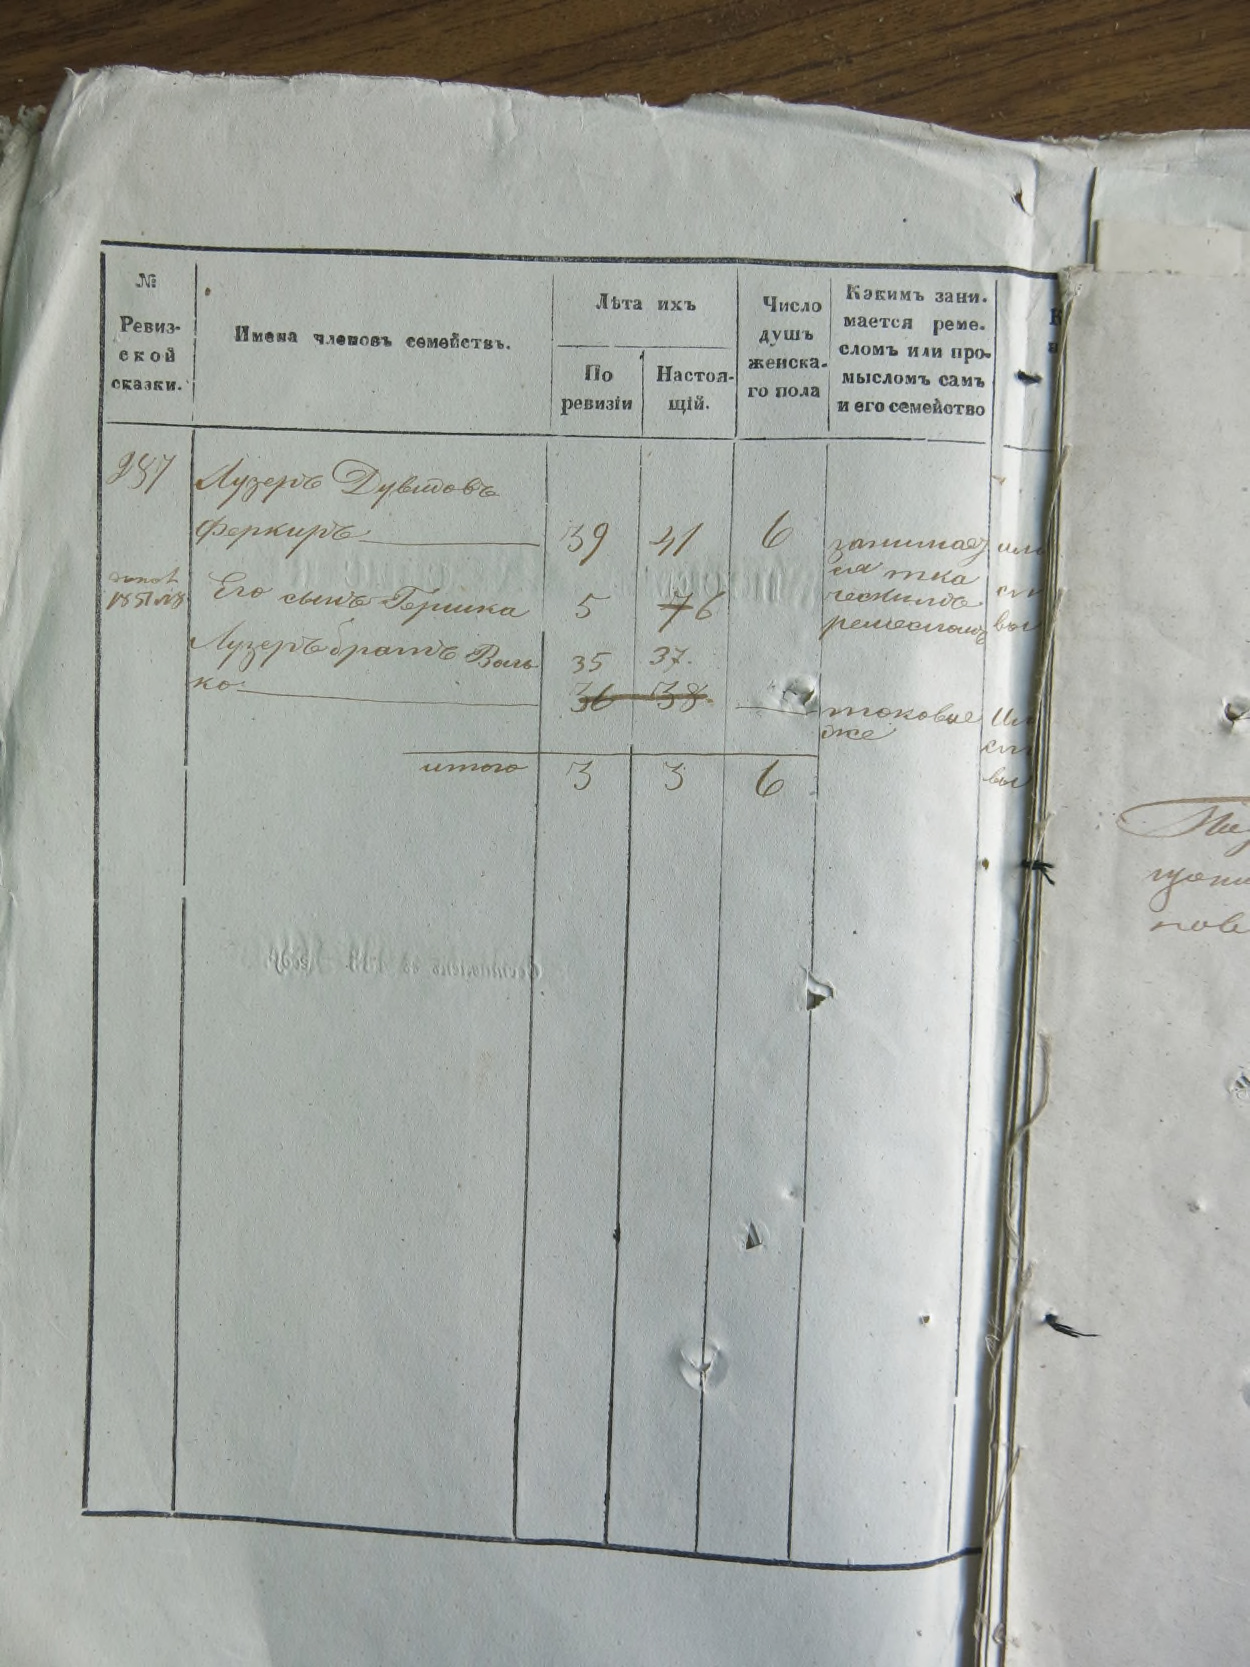 №
Ревиз-
ской
сказки.
Имена членовъ семействъ.
Лѣта ихъ
По
ревизіи
Настоя-
щій.
Число
душъ
женска-
го пола
Какимъ зани-
мается реме-
сломъ или про-
мысломъ самъ
и его семейство
К
а
Лузеръ Дувидовъ
Феркиръ 39 41 6 занимает
ся тка
Его сынъ Гершка 5 7 6 ческимъ
ремесломъ
Лузеръ братъ Воль
ко 35 37.
36 38. таковое
же
итого 3 3 6